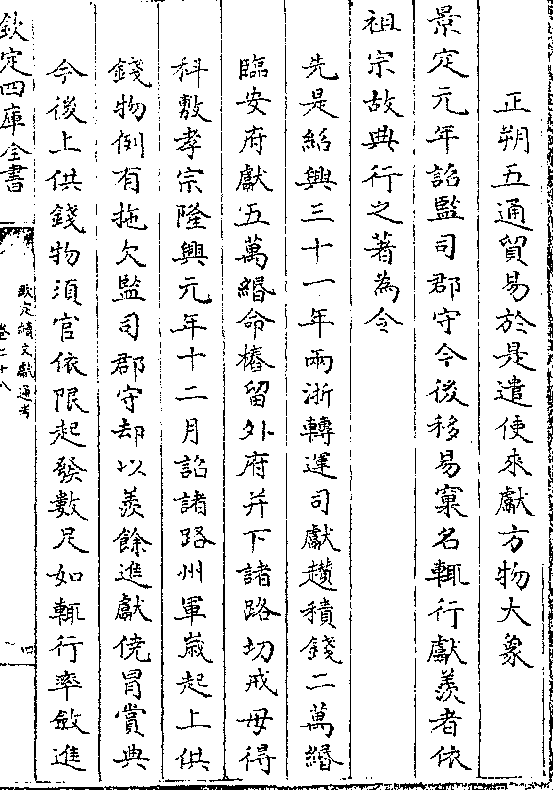 正朔五通貿易於是遣使來獻方物大象
景定元年詔監司郡守今後移易窠名輒行獻羨者依
祖宗故典行之著為令
先是紹興三十一年兩浙轉運司獻趲積錢二萬緡
臨安府獻五萬緡命樁留外府并下諸路切戒毋得
科敷孝宗隆興元年十二月詔諸路州軍嵗起上供
錢物例有拖欠監司郡守却以羨餘進獻僥冒賞典
今後上供錢物須官依限起發數足如輒行率斂進
欽定四庫全書
欽定續文獻通考
卷二十八
四